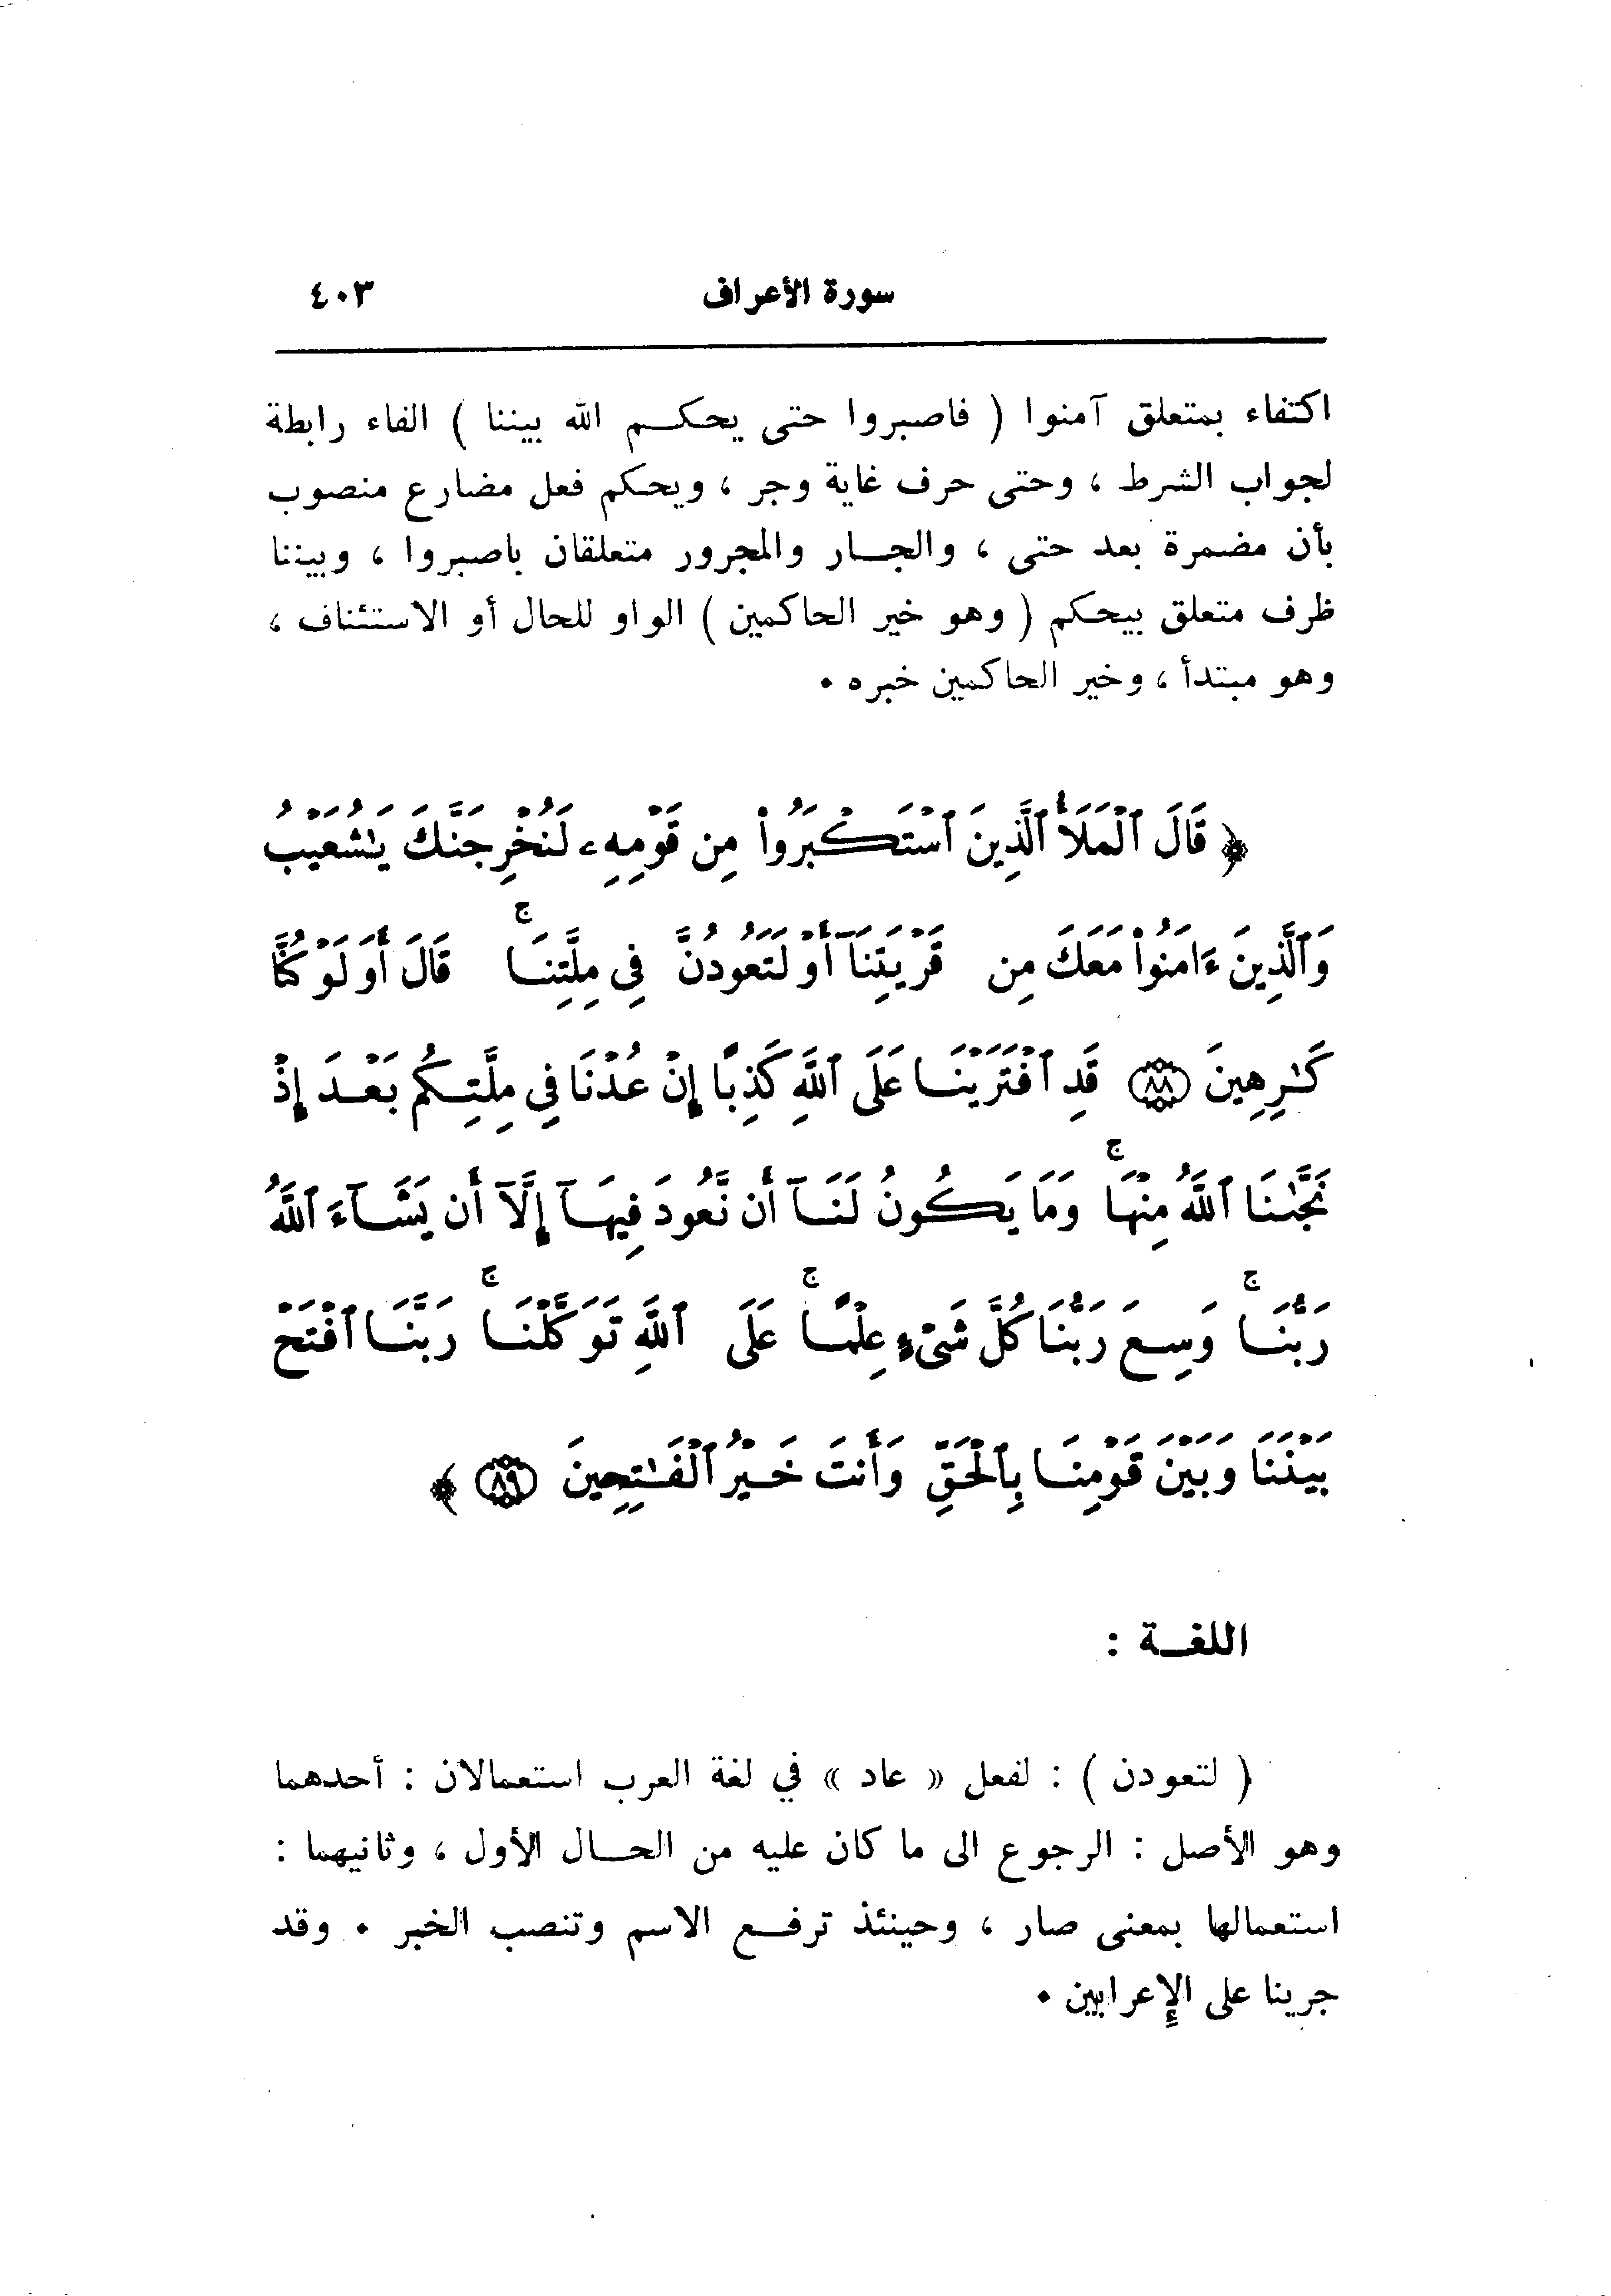 سورة الأعراف ٤٠٣
اكتفاء بمتعلق آمنوا ( فاصبروا حتى يحكم الله بيننا ) الفاء رابطة
لجواب الشرط ، وحتى حرف غاية وجر ، ويحكم فعل مضارع منصوب
بأن مضمرة بعد حتى ، والجار والمجرور متعلقان باصبروا ، وبيننا
ظرف متعلق بيحكم ( وهو خير الحاكمين ) الواو للحال أو الاستئناف ،
وهو مبتدأ ، وخير الحاكمين خبره .
﴿ قَالَ ٱلْمَلَأُ ٱلَّذِينَ ٱسْتَكْبَرُوا۟ مِن قَوْمِهِۦ لَنُخْرِجَنَّكَ يَٰشُعَيْبُ
وَٱلَّذِينَ ءَامَنُوا۟ مَعَكَ مِن قَرْيَتِنَآ أَوْ لَتَعُودُنَّ فِى مِلَّتِنَا ۚ قَالَ أَوَلَوْ كُنَّا
كَٰرِهِينَ ٨٨ قَدِ ٱفْتَرَيْنَا عَلَى ٱللَّهِ كَذِبًا إِنْ عُدْنَا فِى مِلَّتِكُم بَعْدَ إِذْ
نَجَّىٰنَا ٱللَّهُ مِنْهَا ۚ وَمَا يَكُونُ لَنَآ أَن نَّعُودَ فِيهَآ إِلَّآ أَن يَشَآءَ ٱللَّهُ
رَبُّنَا ۚ وَسِعَ رَبُّنَا كُلَّ شَىْءٍ عِلْمًا ۚ عَلَى ٱللَّهِ تَوَكَّلْنَا ۚ رَبَّنَا ٱفْتَحْ
بَيْنَنَا وَبَيْنَ قَوْمِنَا بِٱلْحَقِّ وَأَنتَ خَيْرُ ٱلْفَٰتِحِينَ ٨٩ ﴾
اللغة :
( لتعودن ) : لفعل « عاد » في لغة العرب استعمالان : أحدهما
وهو الأصل : الرجوع الى ما كان عليه من الحال الأول ، وثانيهما :
استعمالها بمعنى صار ، وحينئذ ترفع الاسم وتنصب الخبر . وقد
جرينا على الإعرابين .